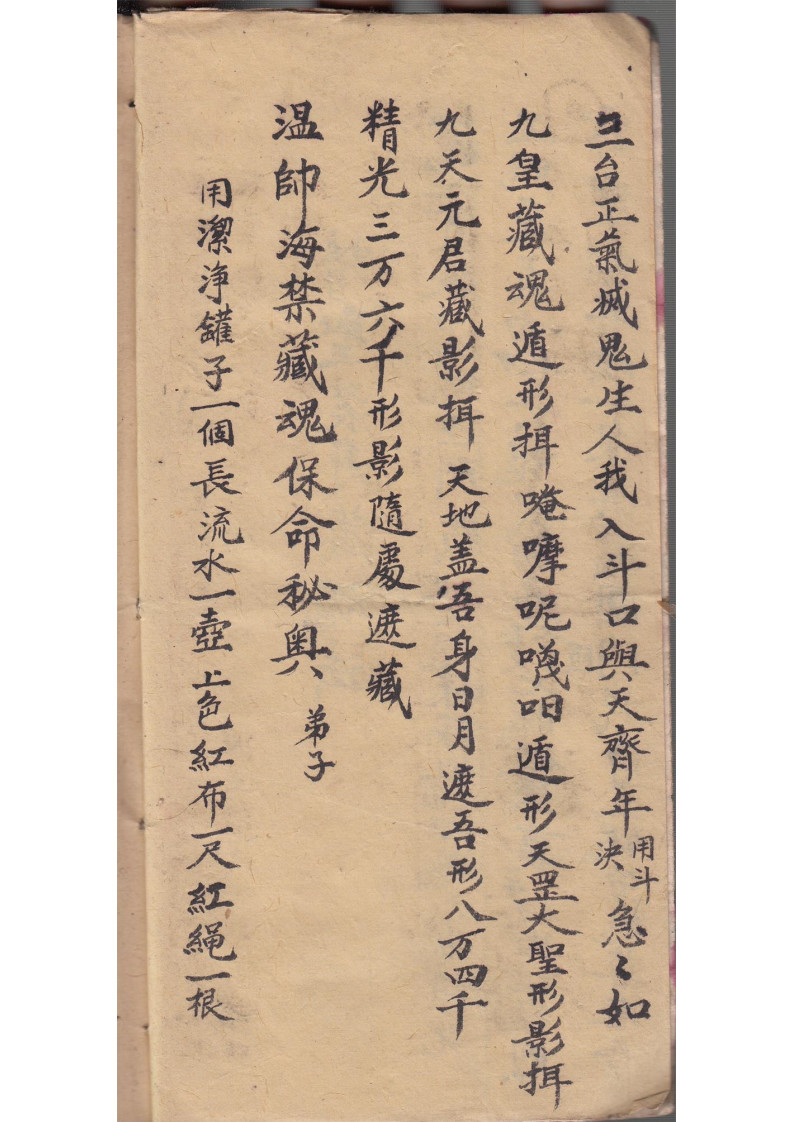 三台正氣滅鬼生人我入斗口與天齊年用斗決急〻如
九皇藏魂遁形挕唵嚤呢𠸍呬遁形天罡大聖形影挕
九天元君藏影挕天地盖吾身日月遮吾形八万四千
精光三万六千形影隨處遮藏
溫帥海禁藏魂保命秘奥弟子
用潔净罐子一個長流水一壺上色紅布一尺紅绳一根